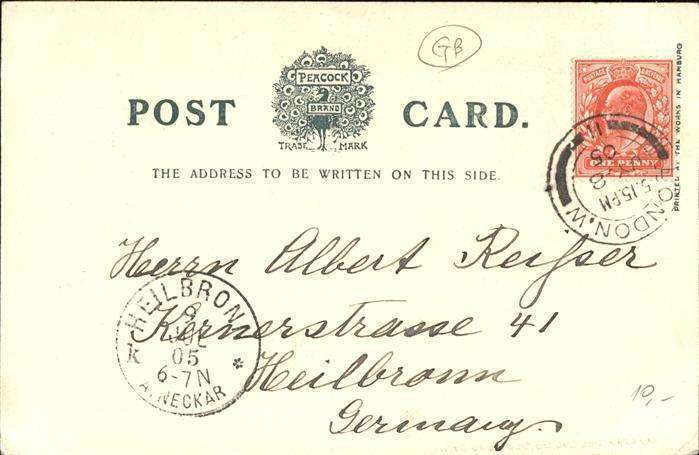 GB
POST CARD.
PEACOCK
BRAND
TRADE MARK
THE ADDRESS TO BE WRITTEN ON THIS SIDE.
POSTAGE REVENUE
ONE PENNY
PRINTED AT THE WORKS IN HAMBURG
LONDON.W
5.15.PM
05
VII
Herrn Albert Reisser
Kernerstrasse 41
Heilbronn
Germany.
HEILBRONN
9
JUL
05
6-7N
A. NECKAR
K *
10,-